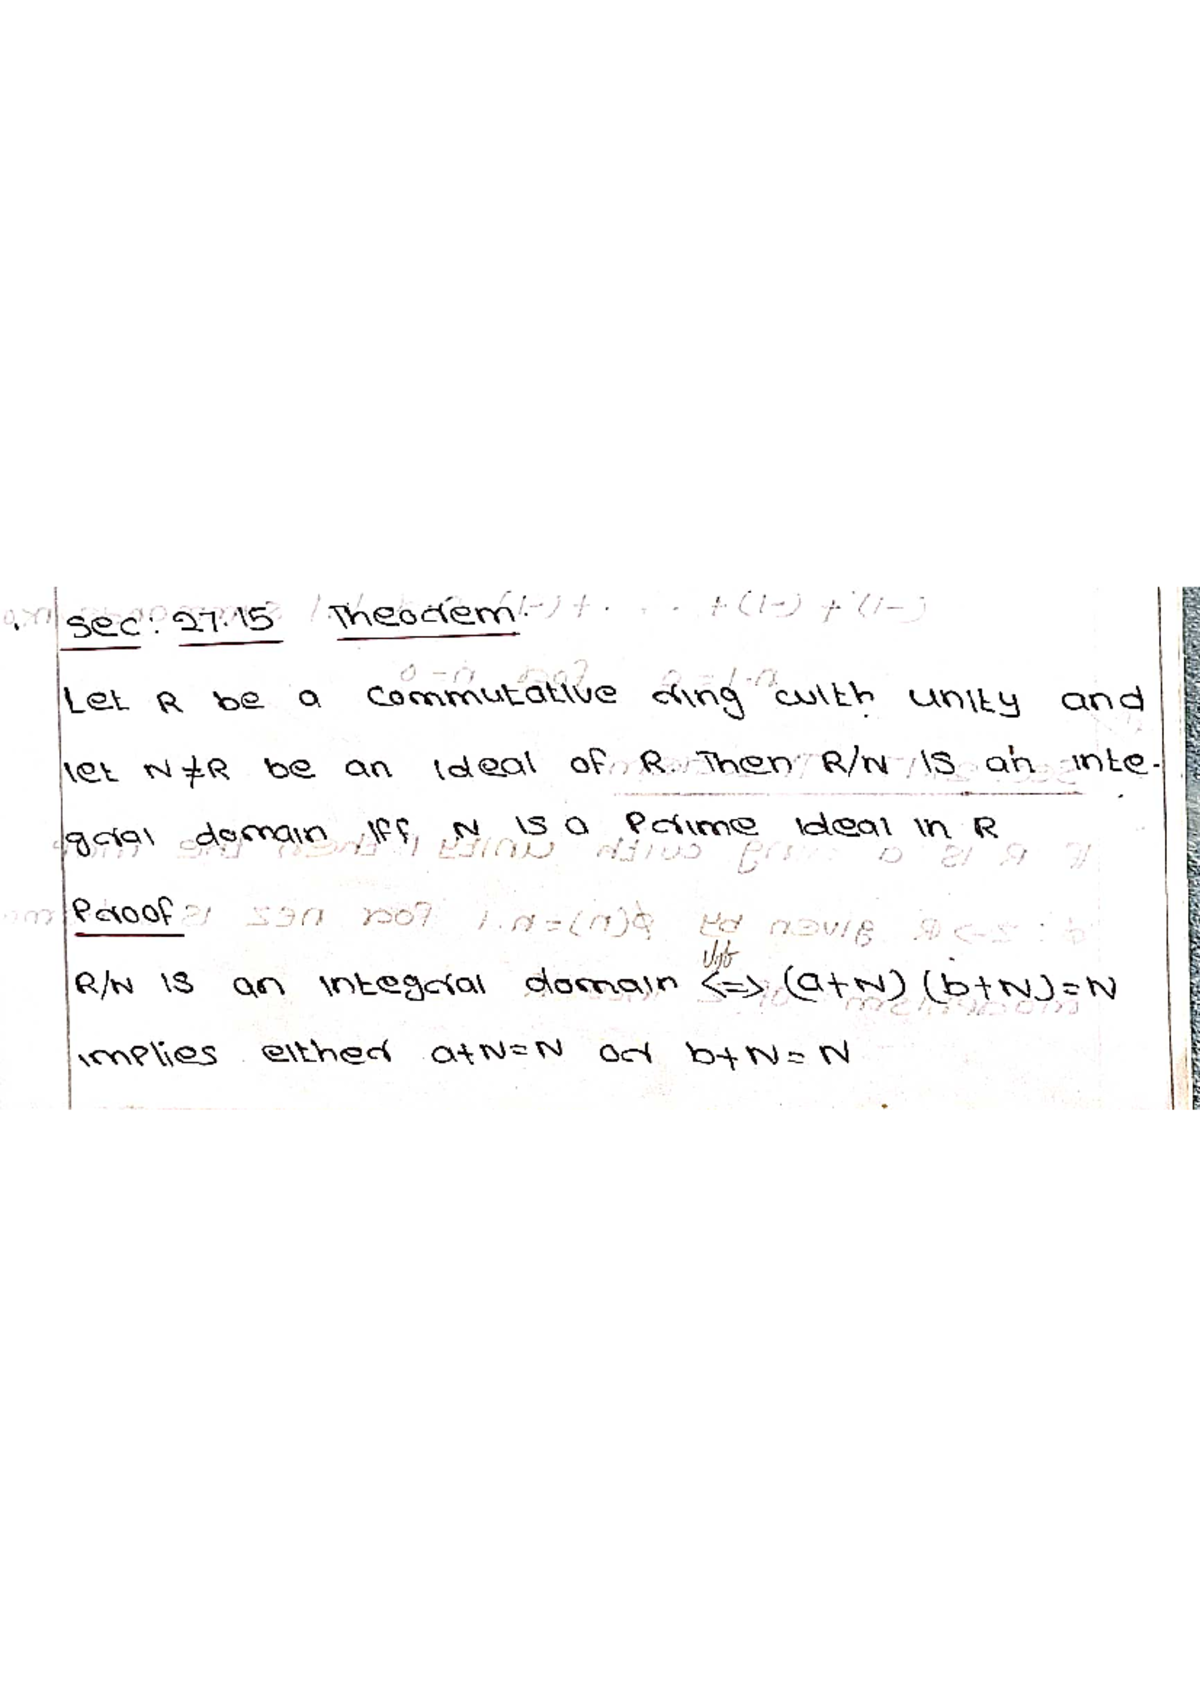 Sec: 27.15 Theorem.
Let R be a commutative ring with unity and
let N≠R be an ideal of R. Then R/N is an inte-
gral domain iff N is a Prime ideal in R
Proof
R/N is an integral domain <=> (a+N) (b+N)=N
implies either a+N=N or b+N=N